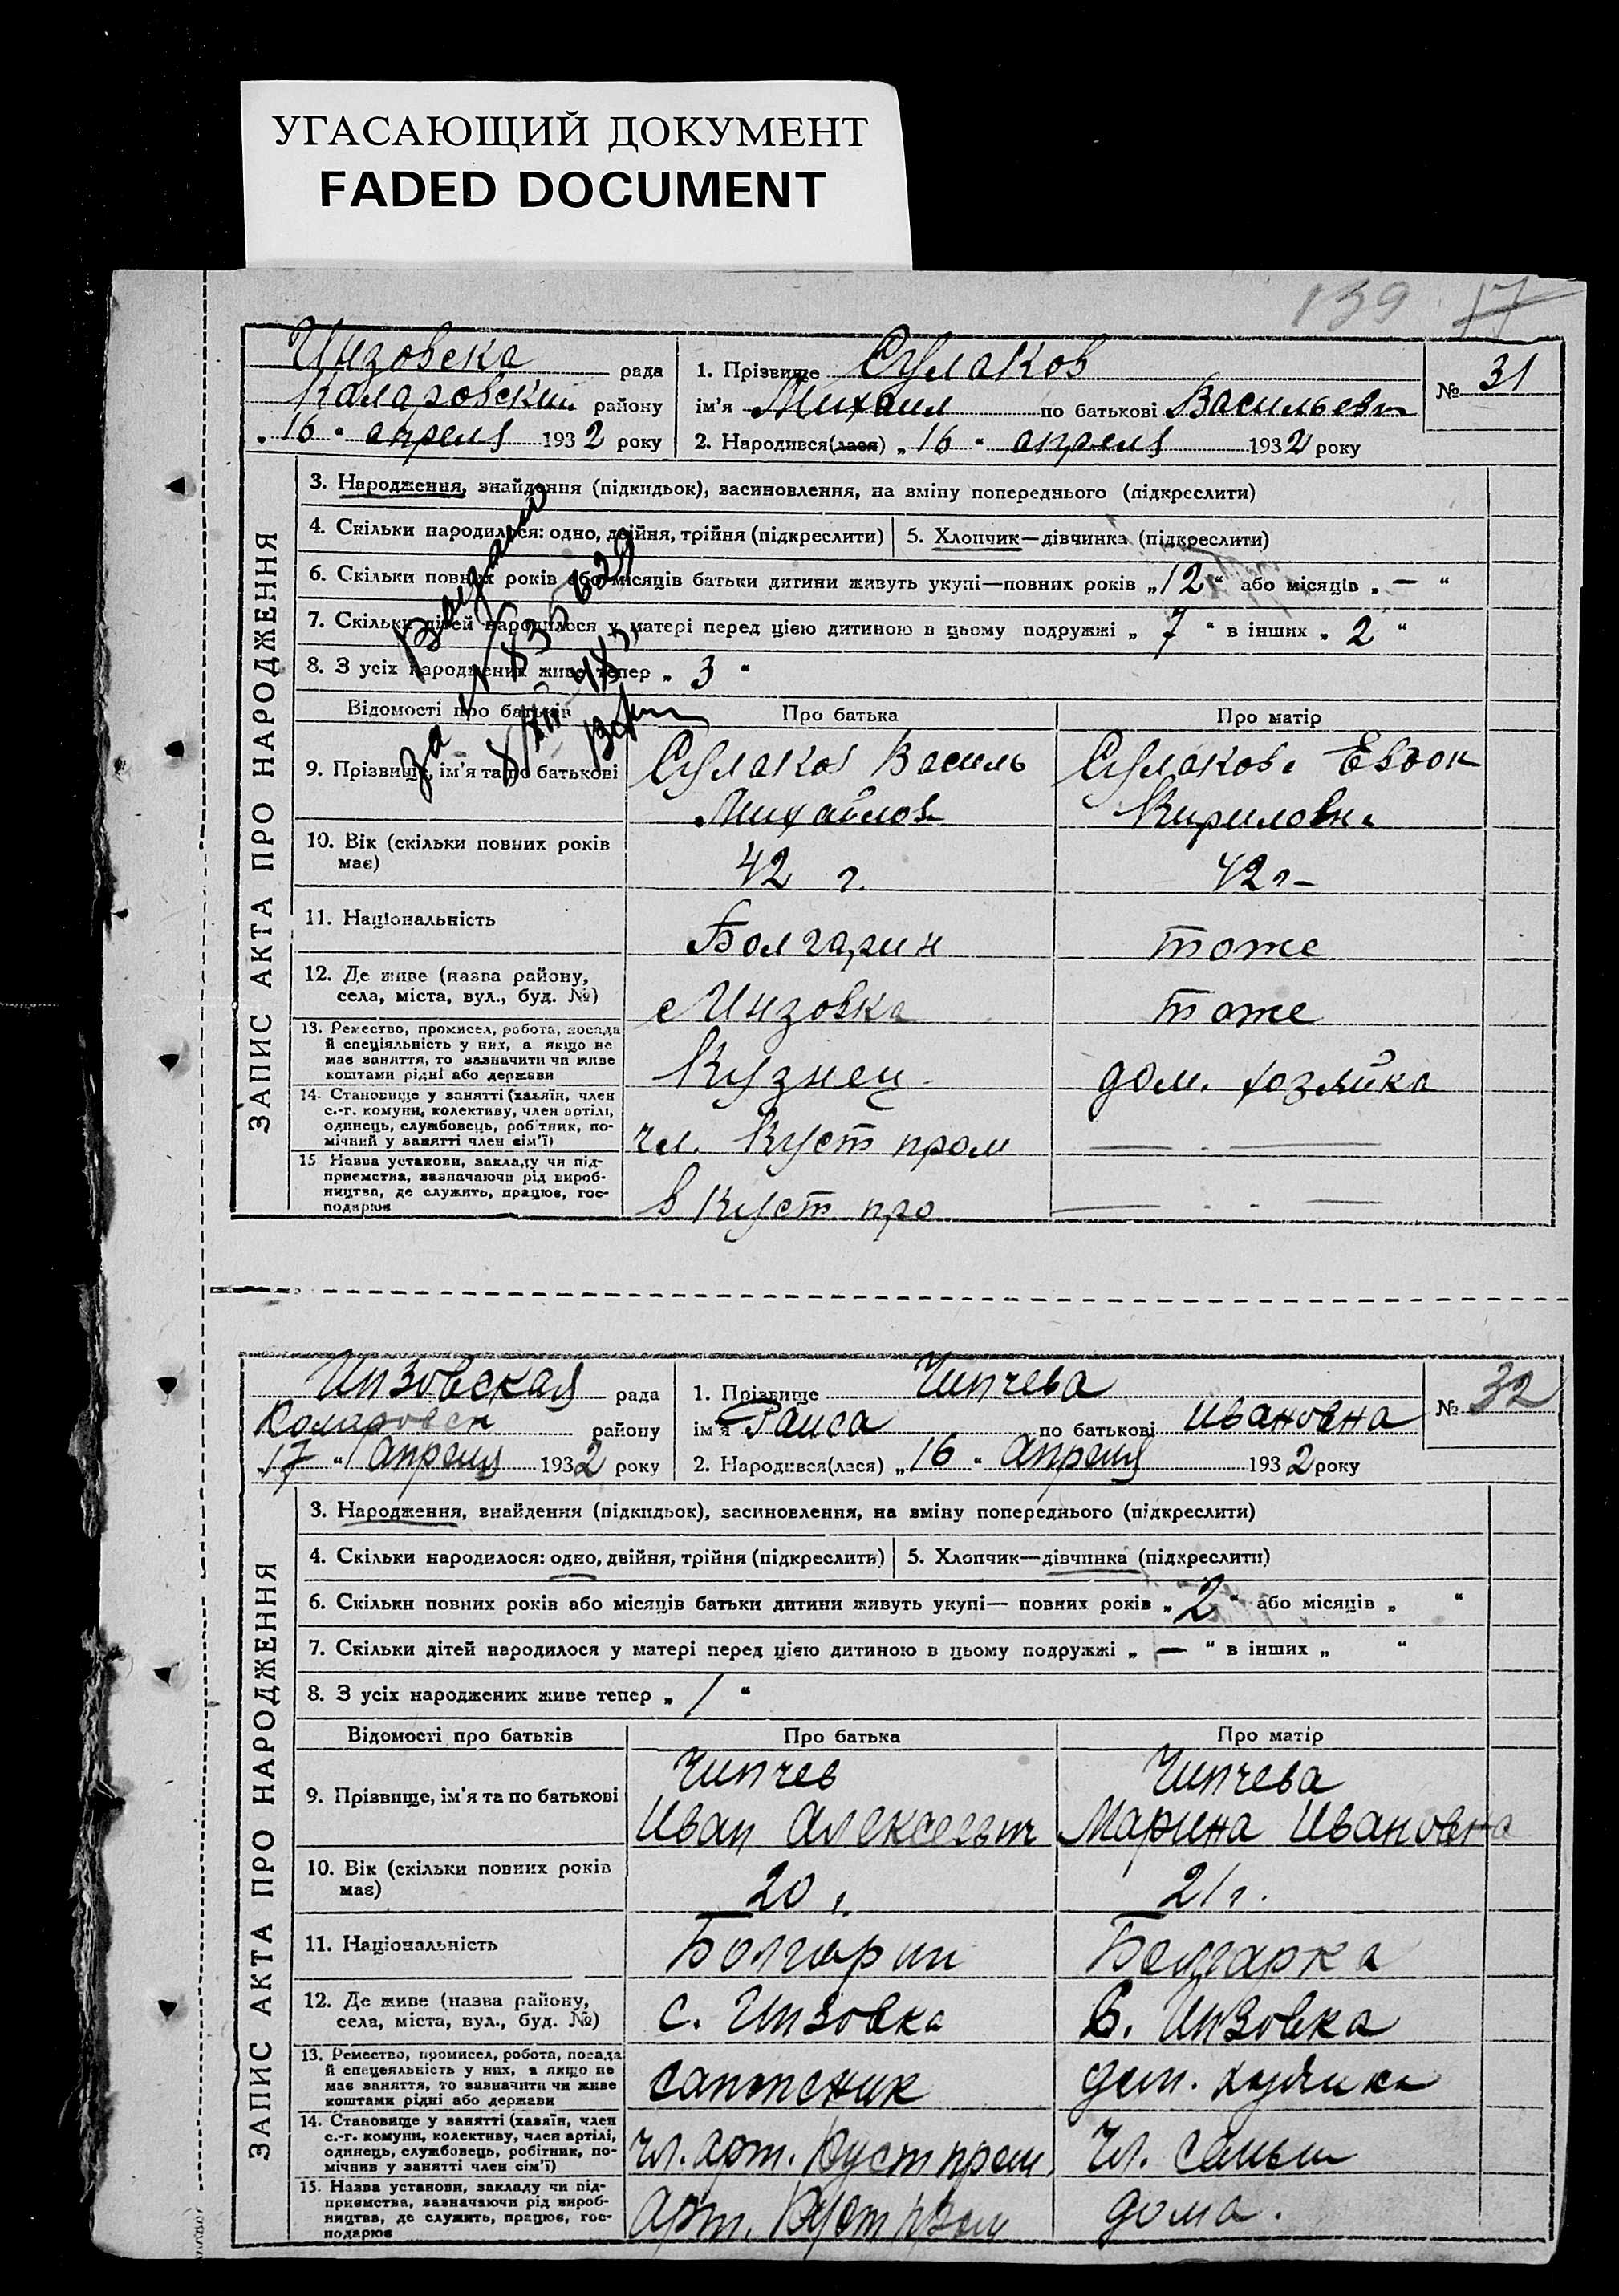 УГАСАЮЩИЙ ДОКУМЕНТ
FADED DOCUMENT
139 17
Инзовска рада
Коларовский району
„16“ апреля 1932 року
1. Прізвище Сулаков
ім'я Михаил по батькові Васильевич
2. Народився(лася) „16“ апреля 1932 року
№ 31
ЗАПИС АКТА ПРО НАРОДЖЕННЯ
3. Народження, знайдення (підкидьок), засиновлення, на зміну попереднього (підкреслити)
4. Скільки народилося: одно, двійня, трійня (підкреслити)
5. Хлопчик—дівчинка (підкреслити)
6. Скільки повних років або місяців батьки дитини живуть укупі—повних років „12“ або місяців „—“
7. Скільки дітей народилося у матері перед цією дитиною в цьому подружжі „7“ в інших „2“
8. З усіх народжених живе тепер „3“
Відомості про батьків Про батька Про матір
9. Прізвище, ім'я та по батькові
Сулаков Василь
Михайлов
Сулакова Евдок
Кириловна
10. Вік (скільки повних років
має)
42 г.
42 г
11. Національність
Болгарин
тоже
12. Де живе (назва району,
села, міста, вул., буд. №)
с Инзовка
тоже
13. Ремество, промисел, робота, посада
й спеціяльність у них, а якщо не
має заняття, то зазначити чи живе
коштами рідні або держави
Кузнец
дом. хозяйка
14. Становище у занятті (хазяїн, член
с.-г. комуни, колективу, член артілі,
одинець, службовець, робітник, по-
мічний у занятті член сім'ї)
чл. Куст пром
15 Назва установи, закладу чи під-
приємства, зазначаючи рід вироб-
ництва, де служить, працює, гос-
подарює
в Куст про
Инзовская рада
Коларовск району
„17“ Апреля 1932 року
1. Прізвище Чипчева
ім'я Раиса по батькові Ивановна
2. Народився(лася) „16“ Апреля 1932 року
№ 32
ЗАПИС АКТА ПРО НАРОДЖЕННЯ
3. Народження, знайдення (підкидьок), засиновлення, на зміну попереднього (підкреслити)
4. Скільки народилося: одно, двійня, трійня (підкреслити)
5. Хлопчик—дівчинка (підкреслити)
6. Скільки повних років або місяців батьки дитини живуть укупі— повних років „2“ або місяців „ “
7. Скільки дітей народилося у матері перед цією дитиною в цьому подружжі „—“ в інших „ “
8. З усіх народжених живе тепер „1“
Відомості про батьків Про батька Про матір
9. Прізвище, ім'я та по батькові
Чипчев
Иван Алексеевич
Чипчева
Марина Ивановна
10. Вік (скільки повних років
має)
20 г.
21 г.
11. Національність
Болгарин
Болгарка
12. Де живе (назва району,
села, міста, вул., буд. №)
с. Инзовка
С. Инзовка
13. Ремество, промисел, робота, посада
й спецеяльність у них, а якщо не
має заняття, то зазначити чи живе
коштами рідні або держави
сапожник
дом. хозяйка
14. Становище у занятті (хазяїн, член
с.-г. комуни, колективу, член артілі,
одинець, службовець, робітник, по-
мічнив у занятті член сім'ї)
чл. арт. Кустпром.
Чл. семьи
15. Назва установи, закладу чи під-
приємства, зазначаючи рід вироб-
ництва, де служить, працює, гос-
подарює
Арт. Кустпром
дома.